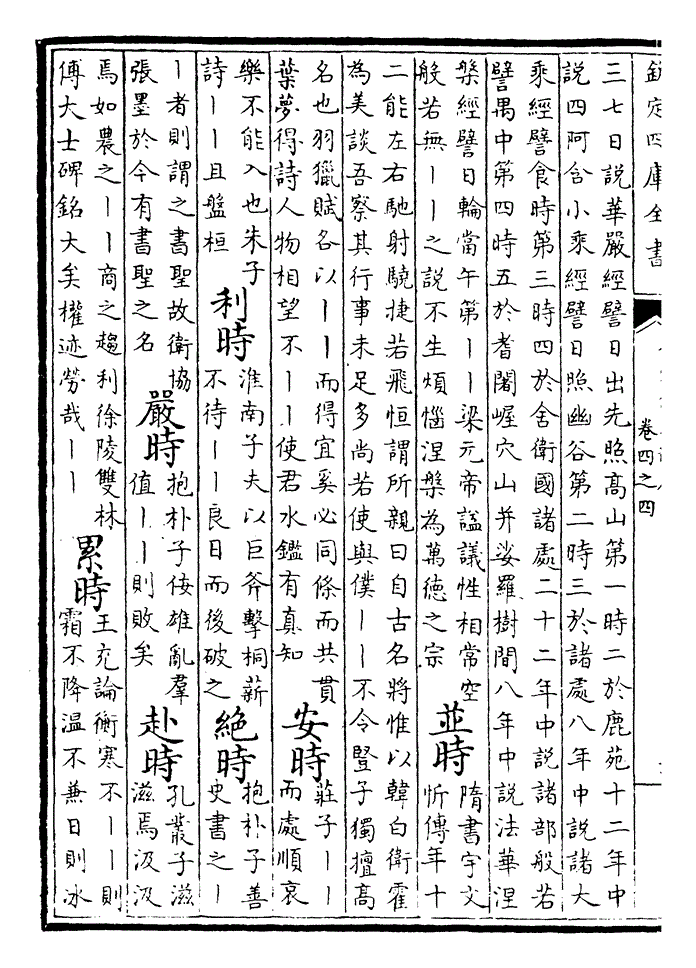 欽定四庫全書
卷四之四
三七日説華嚴經譬日出先照髙山第一時二於鹿苑十二年中
説四阿含小乘經譬日照幽谷第二時三於諸處八年中説諸大
乘經譬食時第三時四於舍衛國諸處二十二年中説諸部般若
譬禺中第四時五於耆闍崛穴山并娑羅樹間八年中説法華涅
槃經譬日輪當午第丨丨梁元帝謚議性相常空
般若無丨丨之説不生煩惱涅槃為萬德之宗
並時
隋書宇文
忻傳年十
二能左右馳射驍捷若飛恒謂所親曰自古名將惟以韓白衛霍
為美談吾察其行事未足多尚若使與僕丨丨不令豎子獨擅髙
名也羽獵賦各以丨丨而得宜奚必同條而共貫
葉夢得詩人物相望不丨丨使君水鑑有真知
安時
莊子丨丨
而處順哀
樂不能入也朱子
詩丨丨且盤桓
利時
淮南子夫以巨斧擊桐薪
不待丨丨良日而後破之
絶時
抱朴子善
史書之丨
丨者則謂之書聖故衛協
張墨於今有書聖之名
嚴時
抱朴子佞雄亂羣
值丨丨則敗矣
赴時
孔叢子滋
滋焉汲汲
焉如農之丨丨商之趨利徐陵雙林
傅大士碑銘大矣權迹勞哉丨丨
累時
王充論衡寒不丨丨則
霜不降温不兼日則冰